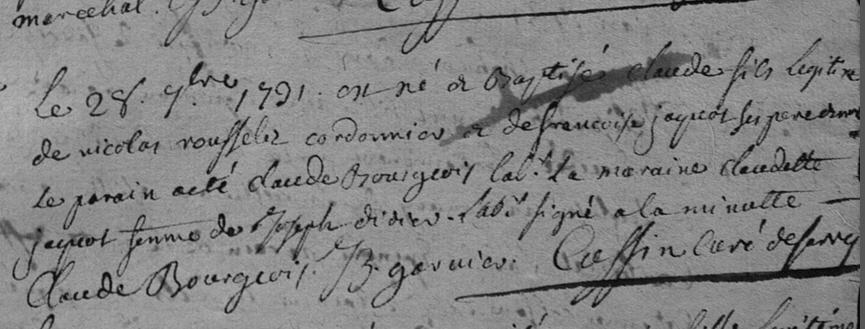 marechal.
Le 28. 7bre 1731. est né et Baptisé claude fils Legitime
de nicolas rousselez cordonnier et de francoise jaquot ses pere et mere
Le parain a eté claude Bourgeois lab.r La maraine claudette
jaquot femme de Joseph didier. Lab.r signé a la minutte
Claude Bourgeois. B. garnier. Cuffin Curé de